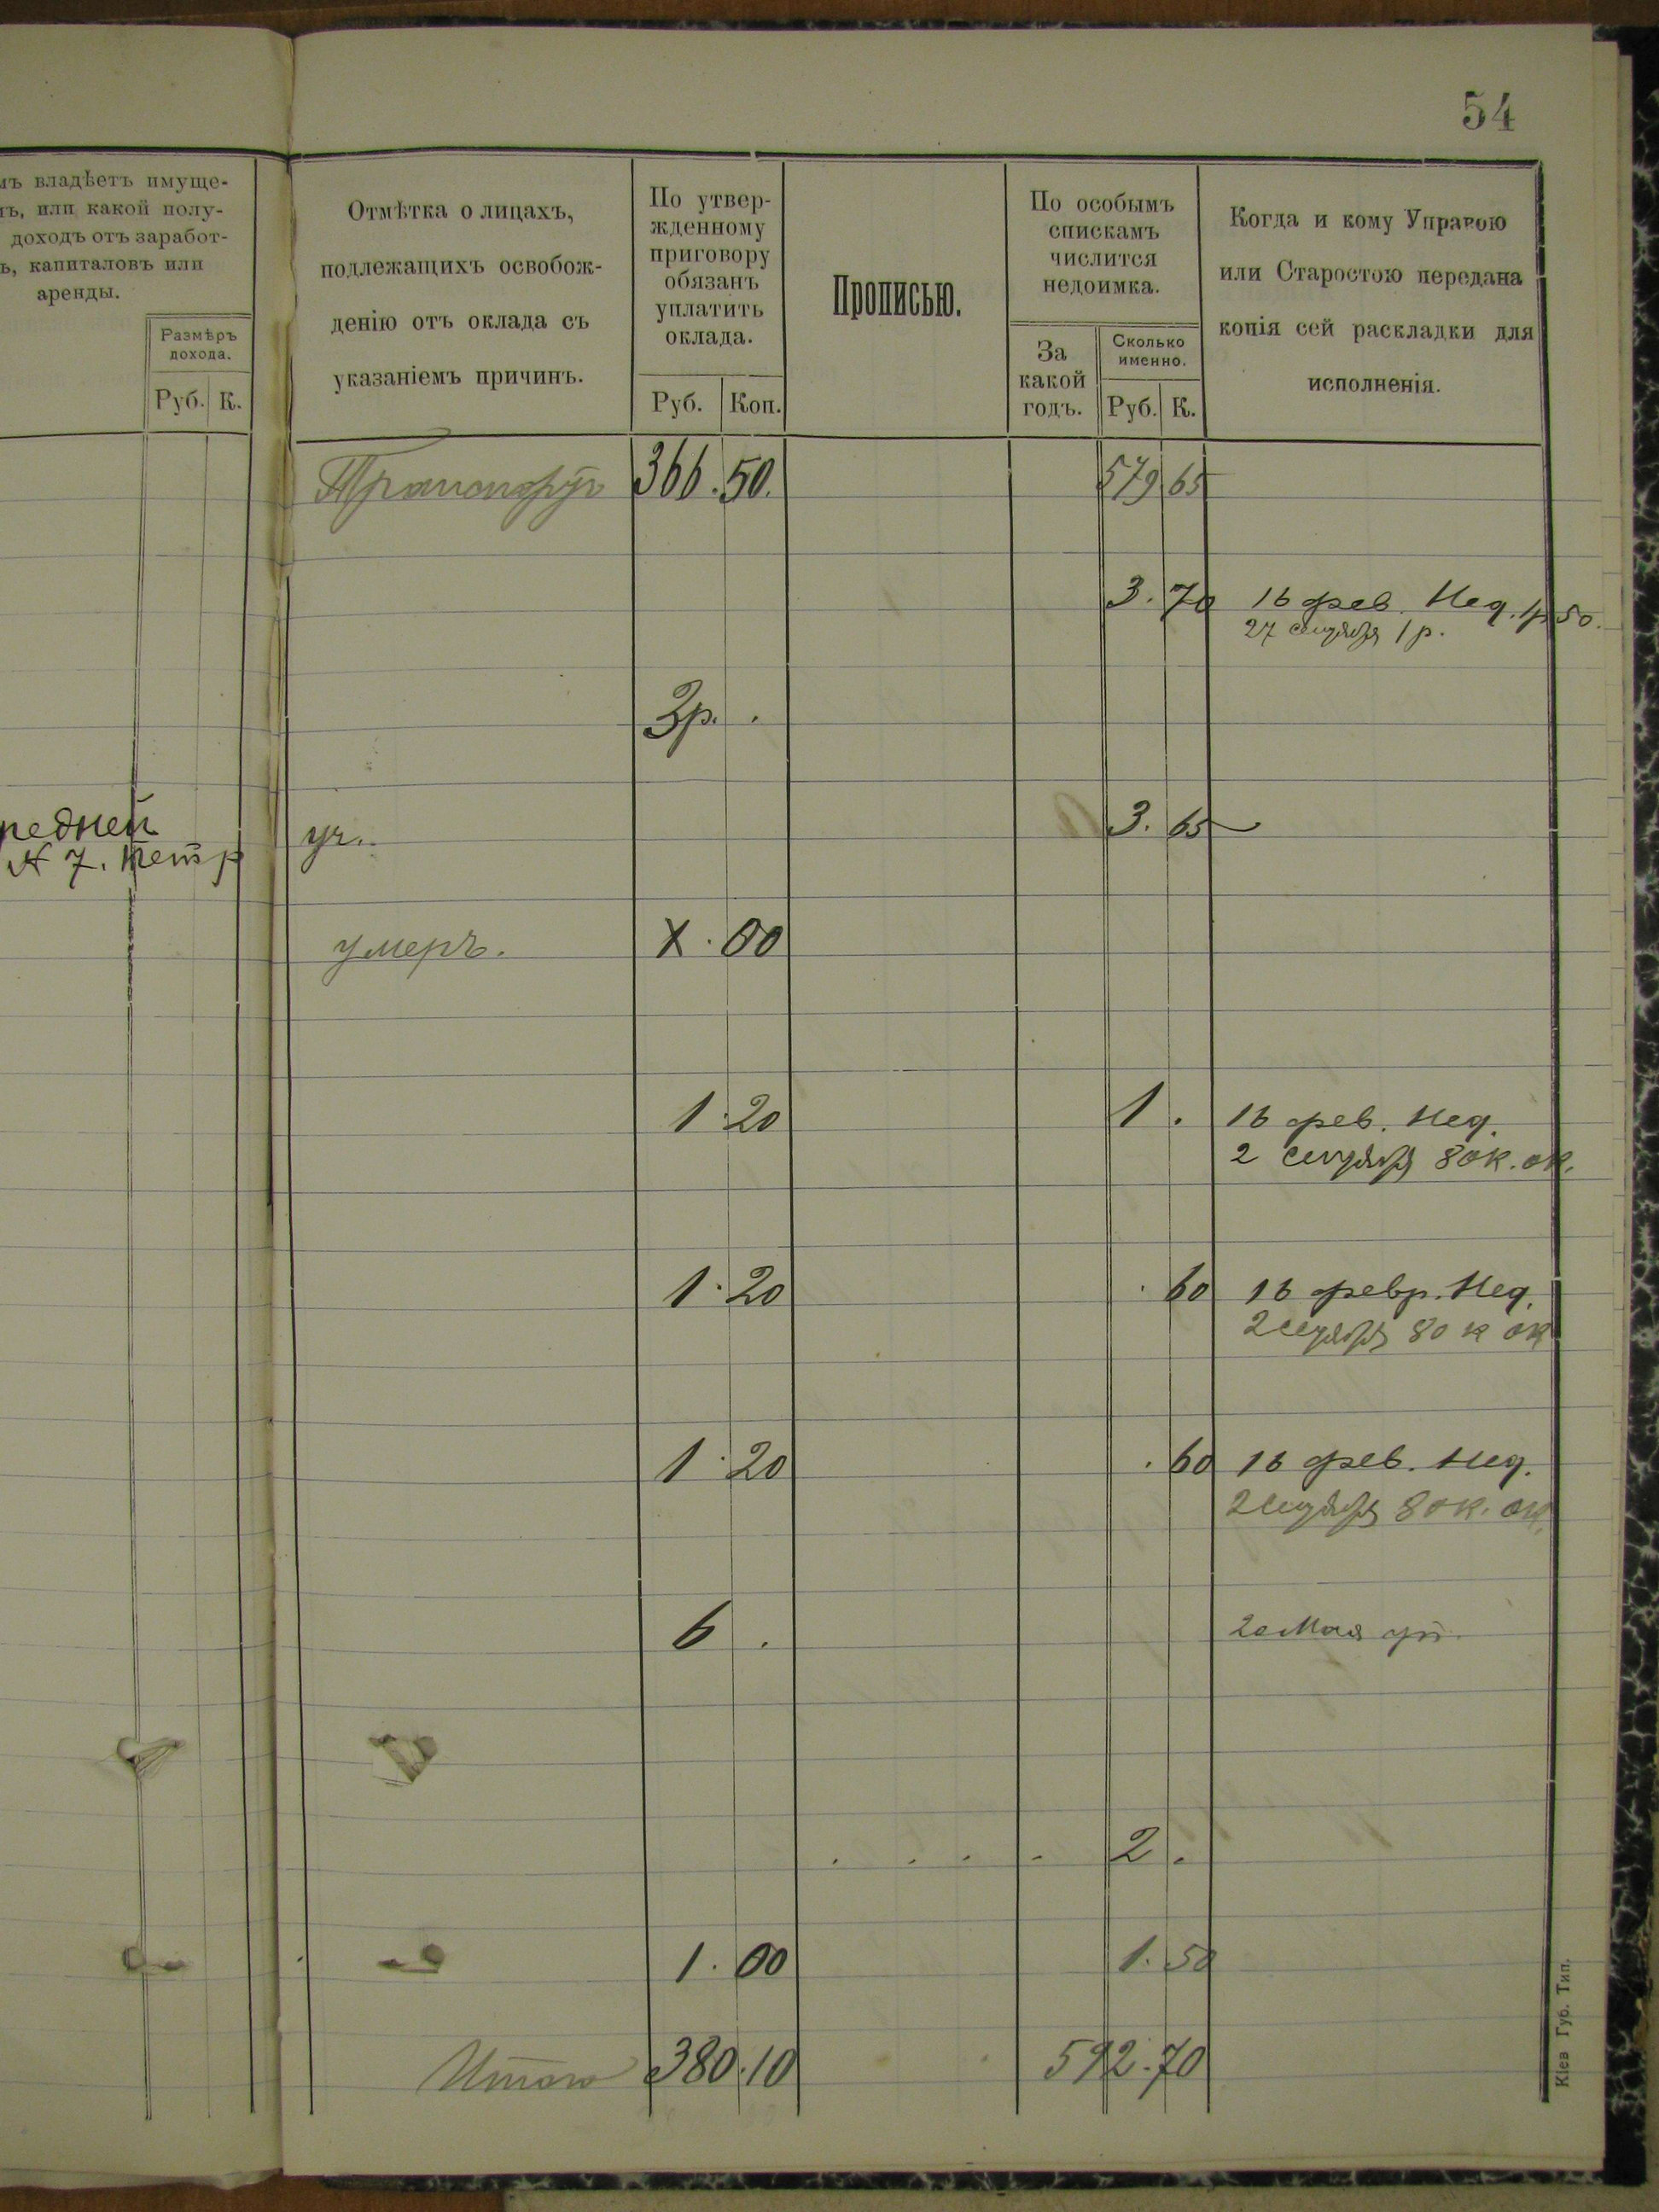 54
мъ владѣетъ имуще-
ъ, или какой полу-
доходъ отъ заработ-
ъ, капиталовъ или
аренды.
Размѣръ
дохода.
Руб. К.
Отмѣтка о лицахъ,
подлежащихъ освобож-
денію отъ оклада съ
указаніемъ причинъ.
По утвер-
жденному
приговору
обязанъ
уплатить
оклада.
Руб. Коп.
Прописью.
По особымъ
спискамъ
числится
недоимка.
За
какой
годъ.
Сколько
именно.
Руб. К.
Когда и кому Управою
или Старостою передана
копія сей раскладки для
исполненія.
Транспортъ 366. 50. 579 65
3. 70 16 фев. Нед. 1р 50.
27 сентября 1 р.
3р. .
редней
N 7. петр
ум. 3. 65
умеръ. X. 00
1. 20 1. 16 фев. Нед.
2 сентября 80к. ок.
1. 20 . 60 16 февр. Нед.
2 сентября 80 к ок
1. 20 . 60 16 фев. Нед.
2 сентября 80к. ок.
6 . 20 Мая уп.
. . . . 2 .
1. 00 1. 50
Итого 380. 10 592. 70
Кіев Губ. Тип.